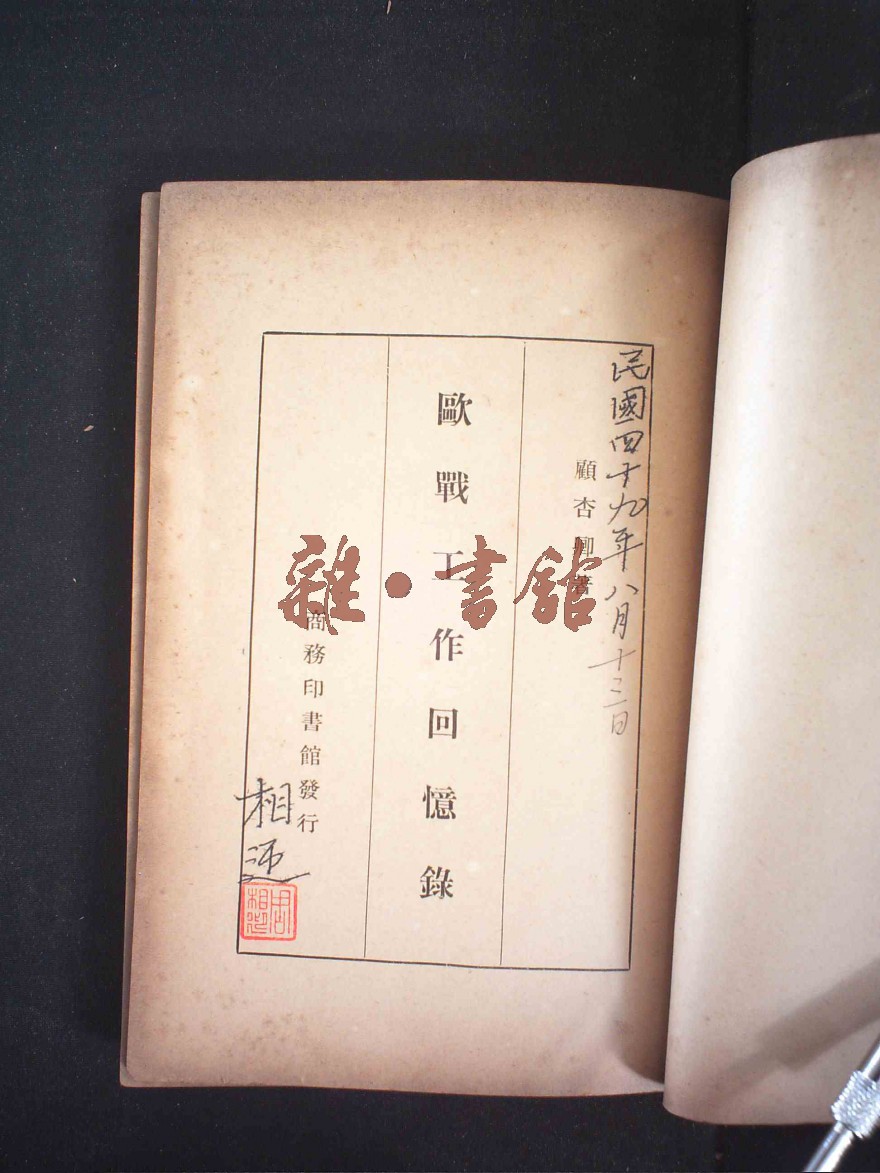 民國四十九年八月十三日
顧杏卿著
歐戰工作回憶錄
商務印書館發行
相
雜·書館